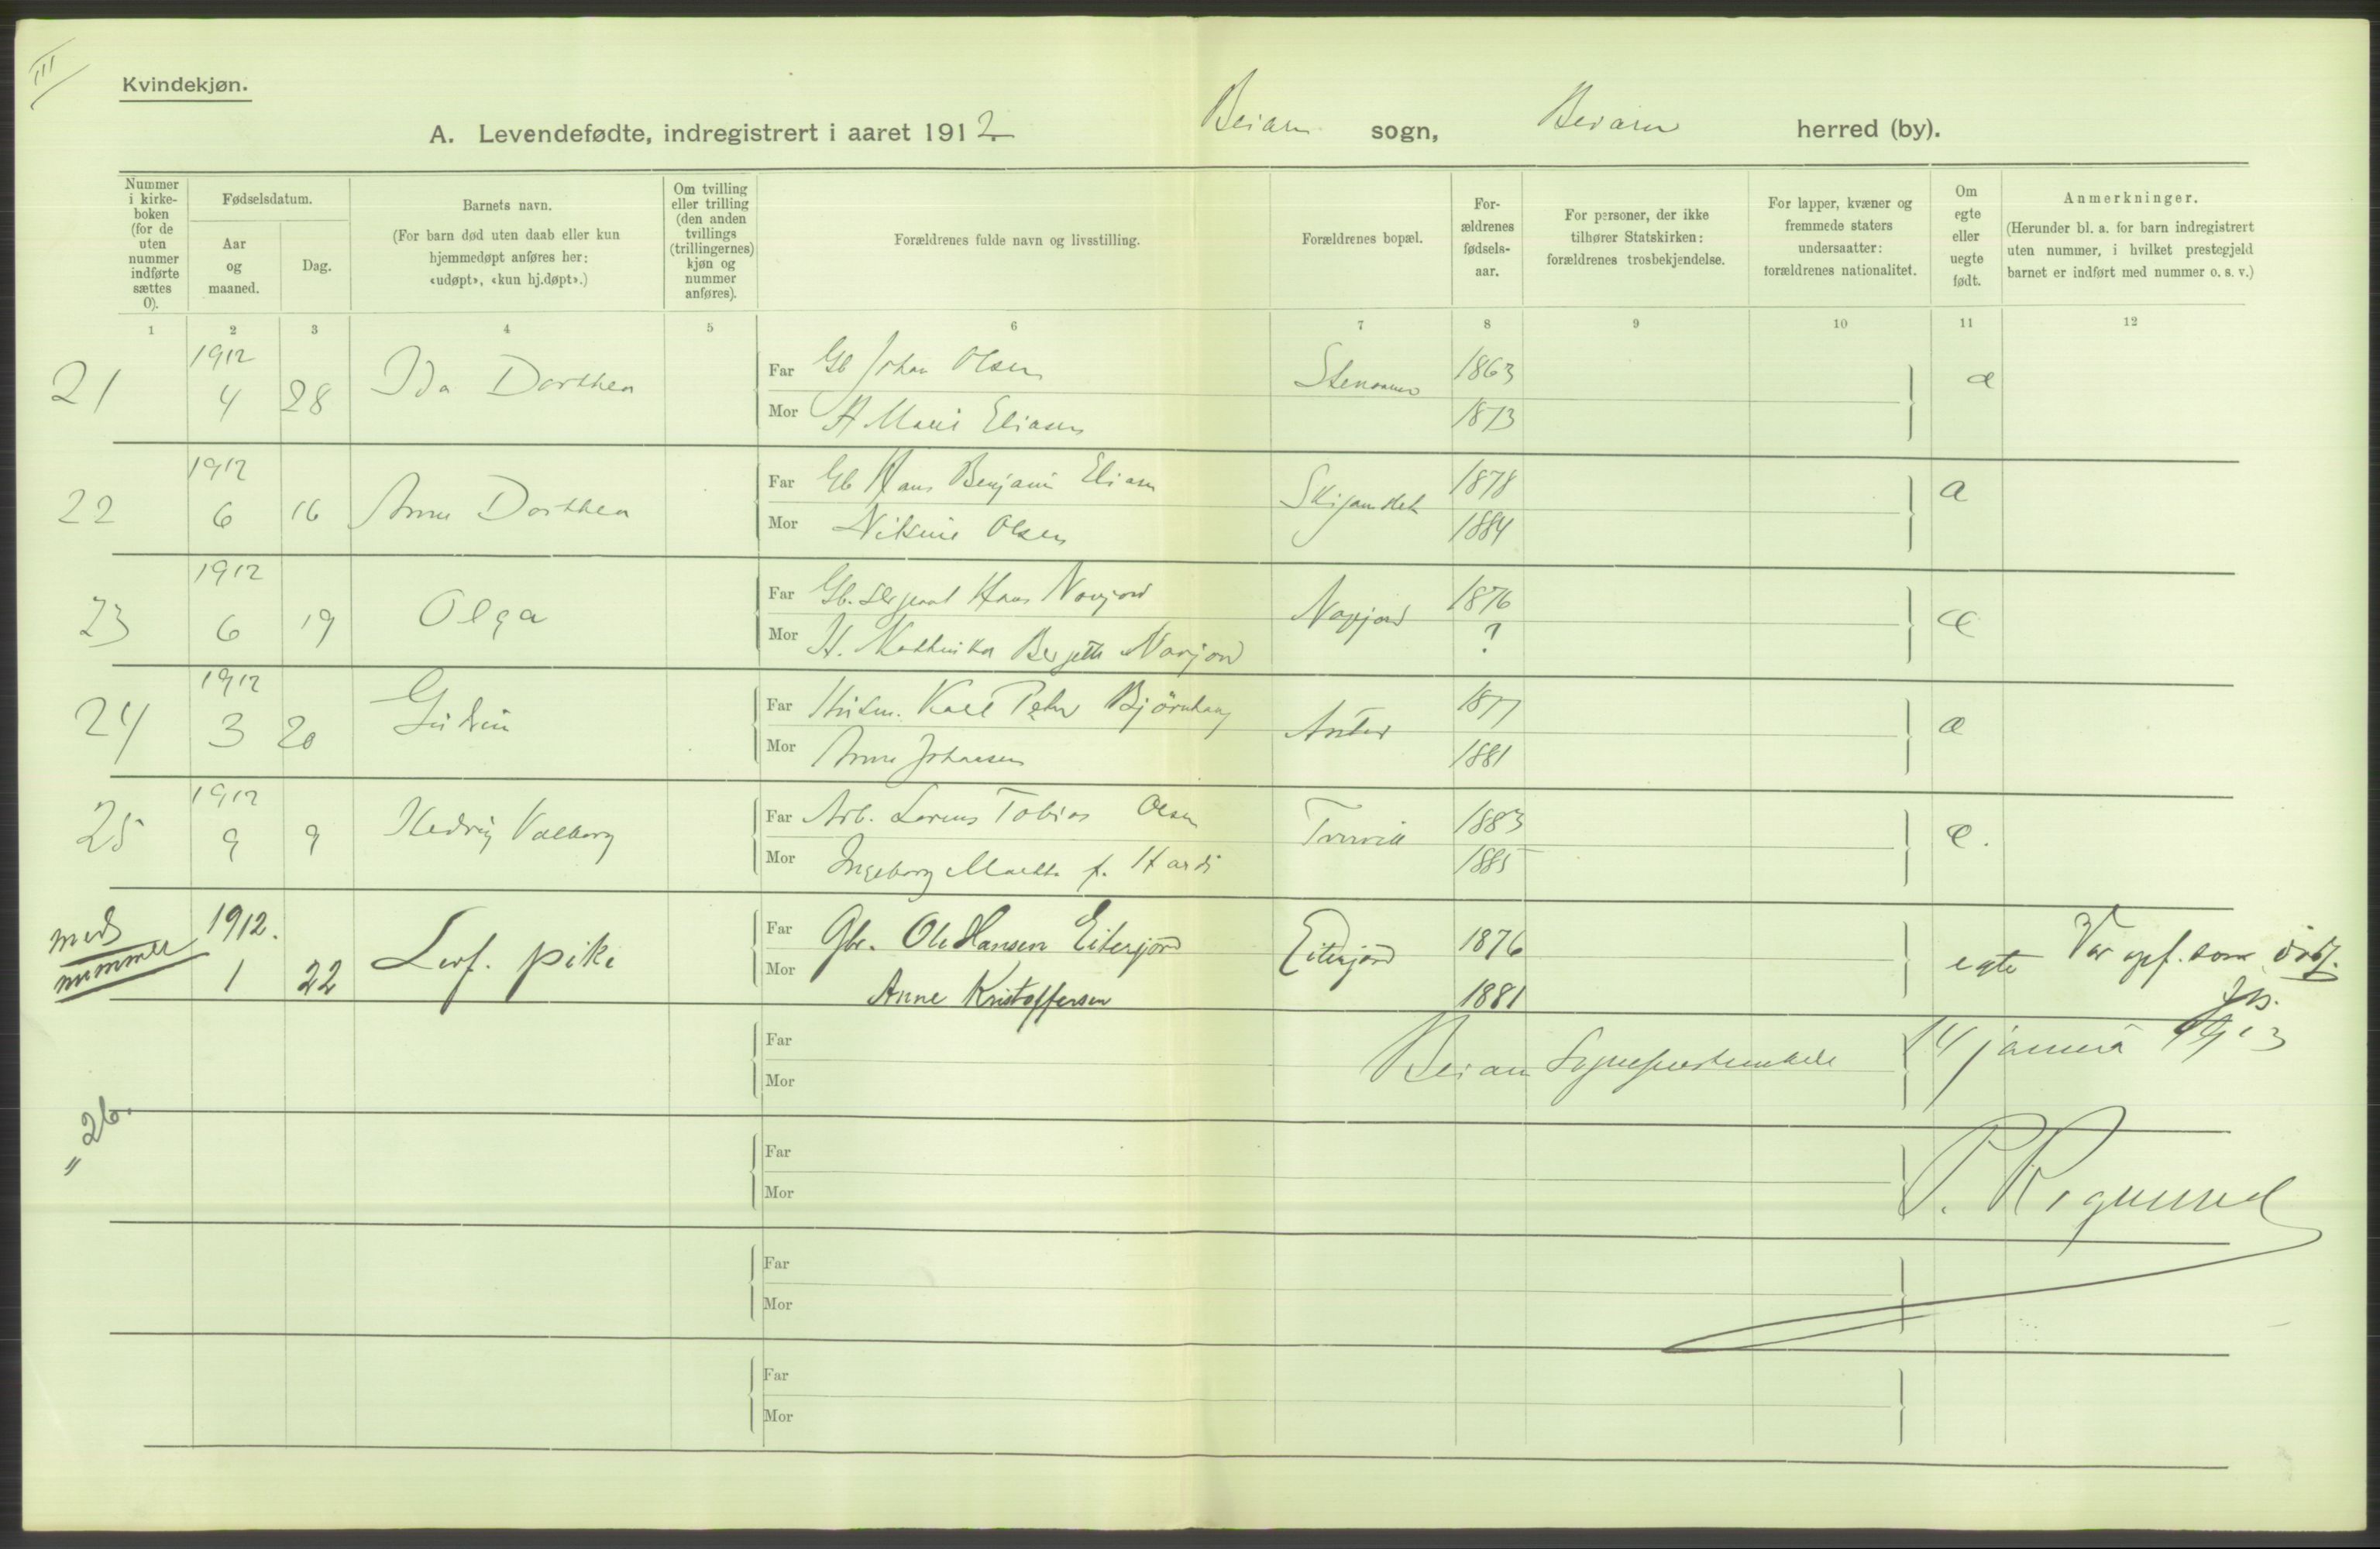 III
Kvindekjøn.
A. Levendefødte, indregistrert i aaret 1912 Beiarn sogn, Beiarn herred (by).
Nummer i kirkeboken (for de uten nummer indførte sættes 0).
Fødselsdatum.
Aar og maaned.
Dag.
Barnets navn.
(For barn død uten daab eller kun hjemmedøpt anføres her: «udøpt», «kun hj.døpt».)
Om tvilling eller trilling (den anden tvillings (trillingernes) kjøn og nummer anføres).
Forældrenes fulde navn og livsstilling.
Forældrenes bopæl.
Forældrenes fødselsaar.
For personer, der ikke tilhører Statskirken: forældrenes trosbekjendelse.
For lapper, kvæner og fremmede staters undersaatter: forældrenes nationalitet.
Om egte eller uegte født.
Anmerkninger.
(Herunder bl. a. for barn indregistrert uten nummer, i hvilket prestegjeld barnet er indført med nummer o. s. v.)
1 2 3 4 5 6 7 8 9 10 11 12
21 1912 4 28 Ida Dorthea
Far Gb Johan Olsen 1863
Mor H Marie Eliasen 1873
22 1912 6 16 Anna Dorthea
Far Gb Hans Benjamin Eliasen 1878
Mor Nilsine Olsen 1884
23 1912 6 19 Olga
Far Gb. Hans Navjord Navjord 1876
Mor H. Bergitte Navjord ?
24 1912 3 20
Far Karl Peter 1877
Mor Anna Johansen 1881
25 1912 9 9 Hedvig Valborg
Far Arb. Lorens Tobias Olsen 1883
Mor Ingeborg f. 1885
med nummer 1912. 1 22 Levf. pike
Far Gbr. Ole Hansen Eiterjord Eiterjord 1876 egte Var opf. som
Mor Anne Kristoffersen 1881
Far
Mor
Beiarn 14 januar 1913
„ 26.
Far
Mor
Far
Mor
Far
Mor